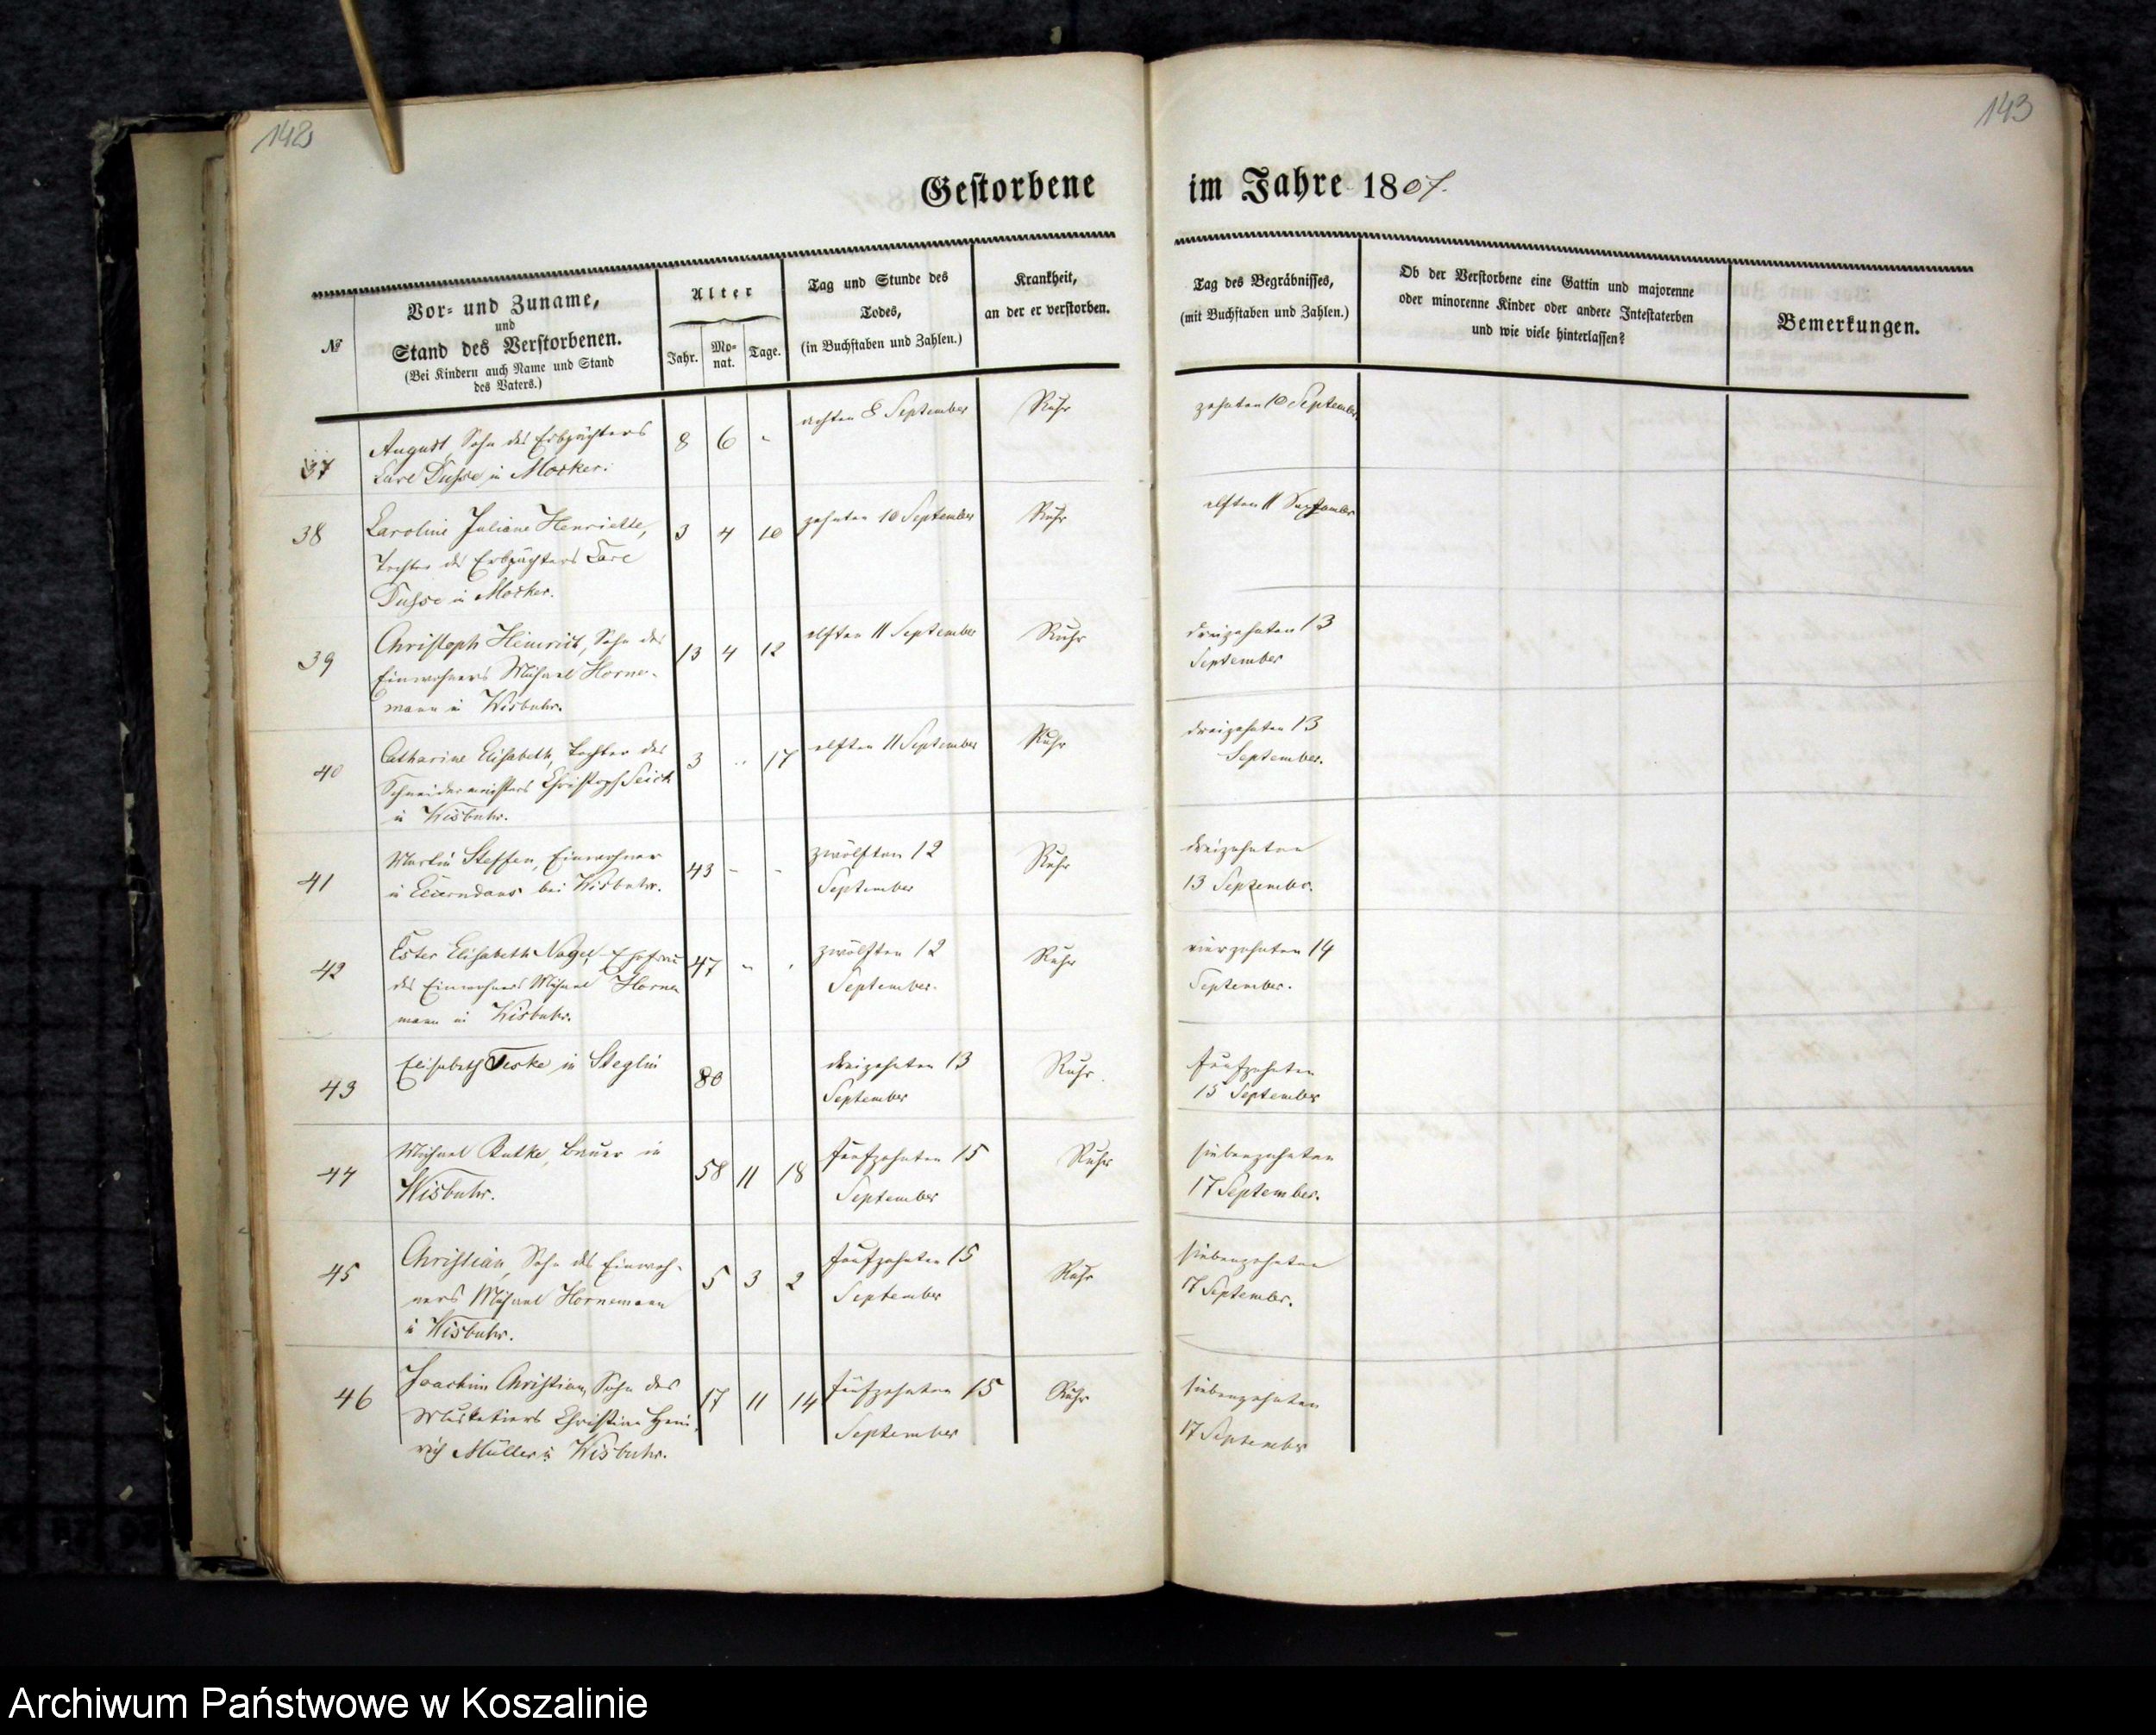 142
143
Gestorbene im Jahre 1807.
№
Vor- und Zuname,
und
Stand des Verstorbenen.
(Bei Kindern auch Name und Stand
des Vaters.)
Alter
Jahr.
Mo-
nat.
Tage.
Tag und Stunde des
Todes,
(in Buchstaben und Zahlen.)
Krankheit,
an der er verstorben.
Tag des Begräbnisses,
(mit Buchstaben und Zahlen.)
Ob der Verstorbene eine Gattin und majorenne
oder minorenne Kinder oder andere Intestaterben
und wie viele hinterlassen?
Bemerkungen.
37
August, Sohn des Erbpächters
Carl in Mocker.
8 6 -
achten 8 September
Ruhr
zehnten 10 September
38
Caroline Juliane Henriette,
Tochter des Erbpächters Carl
in Mocker.
3 4 10
zehnten 10 September
Ruhr
elften 11 September
39
Christoph Heinrich, Sohn des
Einwohners Michael Horne-
mann in Wisbuhr.
13 4 12
elften 11 September
Ruhr
dreizehnten 13
September
40
Catharine Elisabeth, Tochter des
Schneidermeisters Christoph
in Wisbuhr.
3 .. 17
elften 11 September
Ruhr
dreizehnten 13
September.
41
Martin Steffen, Einwohner
in bei Wisbuhr.
43 - -
zwölften 12
September
Ruhr
dreizehnten
13 September.
42
Ester Elisabeth Nagel, Ehefrau
des Einwohners Michael Horne
mann in Wisbuhr.
47
zwölften 12
September.
Ruhr
vierzehnten 14
September.
43
Elisabeth Teske in Steglin
80
dreizehnten 13
September
Ruhr.
fünfzehnten
15 September
44
Michael Butke, Bauer in
Wisbuhr.
58 11 18
fünfzehnten 15
September
Ruhr
siebenzehnten
17 September.
45
Christian, Sohn des Einwoh-
ners Michael Hornemann
in Wisbuhr.
5 3 2
fünfzehnten 15
September
Ruhr
siebenzehnten
17 September.
46
Joachim Christian, Sohn des
Musketiers Christian Hein-
rich Müller in Wisbuhr.
17 11 14
fünfzehnten 15
September
Ruhr
siebenzehnten
17 September
Archiwum Państwowe w Koszalinie